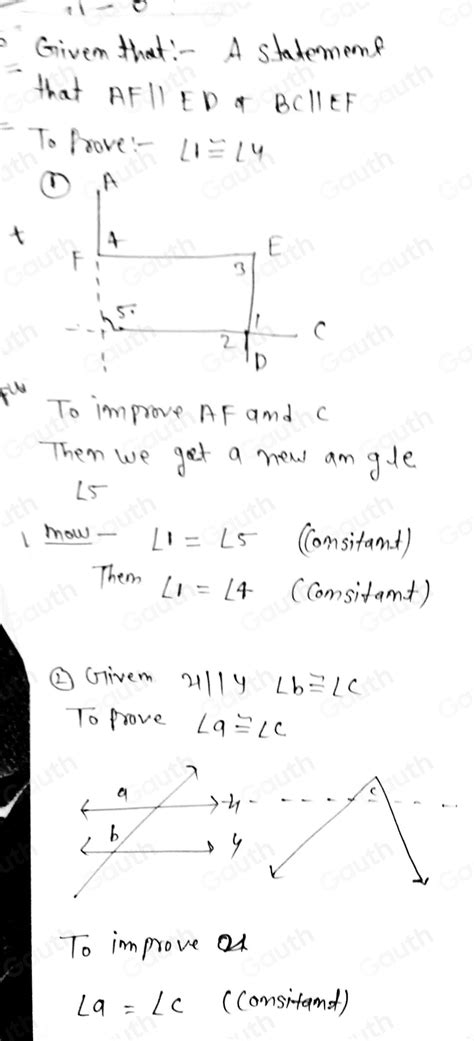 Given that:- A statement
that AF || ED & BC || EF
To Prove:- ∠1 ≅ ∠4
① A
4
F
E
3
5
1
2
C
D
To improve AF and C
Then we get a new angle
∠5
now - ∠1 = ∠5 (Consitant)
Then ∠1 = ∠4 (Consitant)
② Given x || y ∠b ≅ ∠c
To prove ∠a ≅ ∠c
a
x
c
b
y
To improve
∠a = ∠c (Consitant)